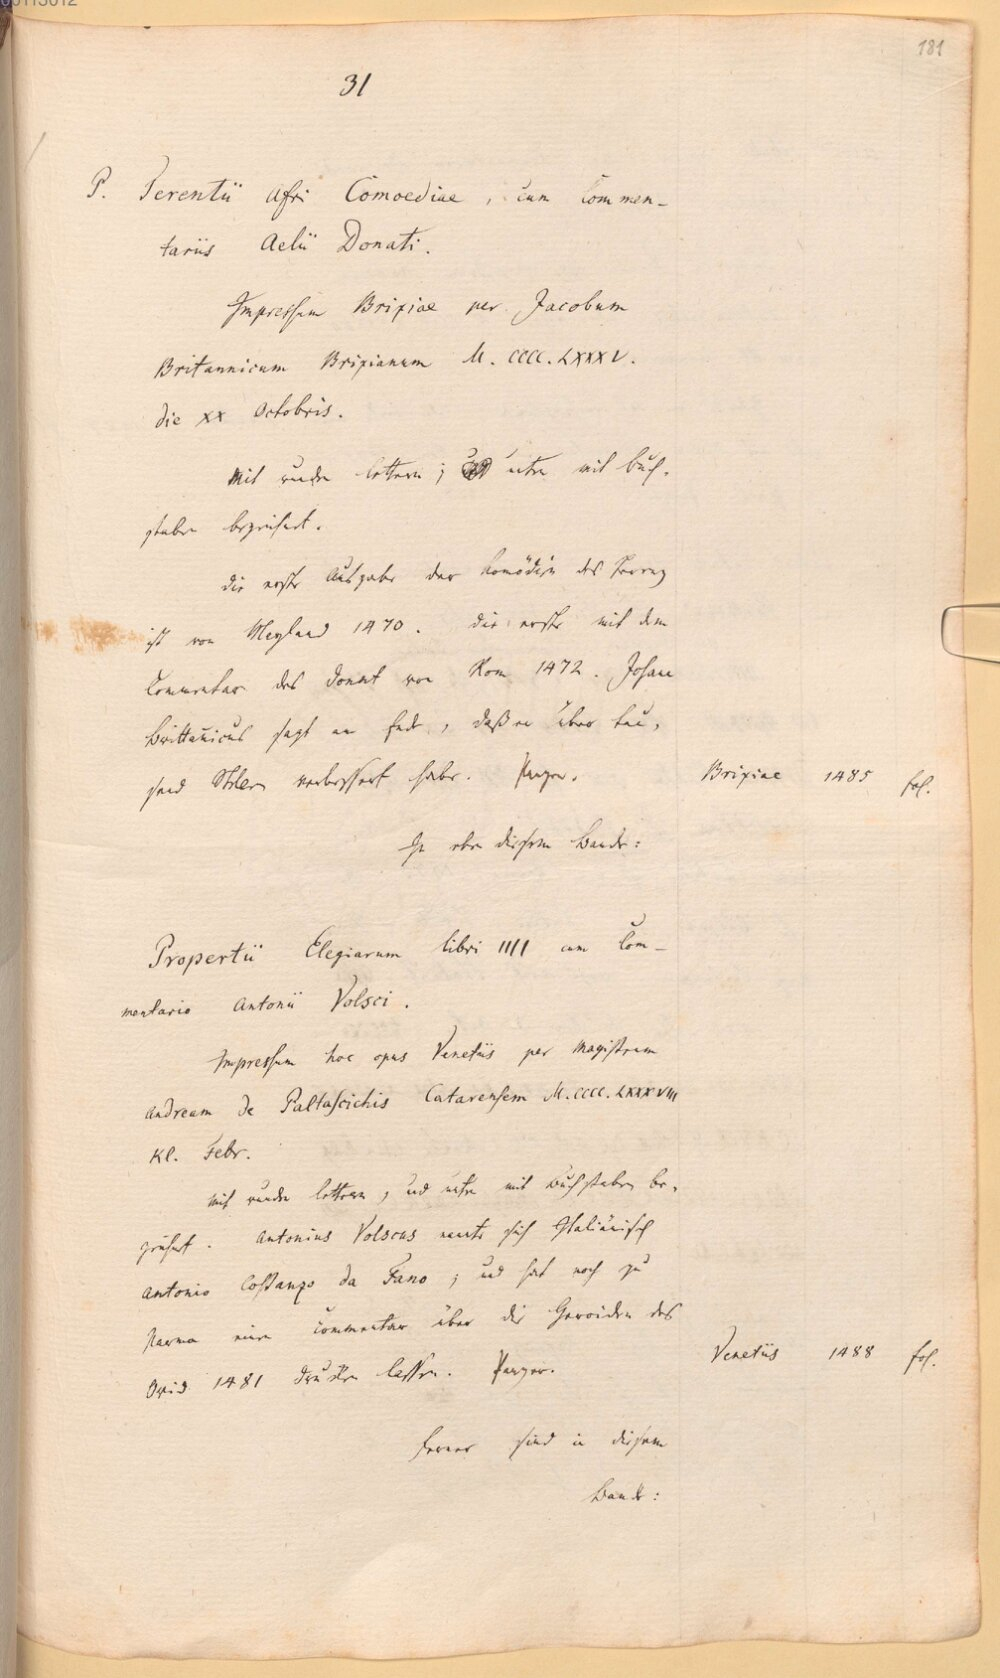 00113012
181
31
P. Terentii Afri Comoediae, cum Commen-
tariis Aelii Donati.
Impressum Brixiae per Jacobum
Britannicum Brixianum M. CCCC. LXXXV.
die XX Octobris.
Mit runden Lettern; unten mit Buch-
staben bezeichnet.
Die erste Ausgabe der Komödien des Terenz
ist von Meyland 1470. Die erste mit dem
Commentar des Donat von Rom 1472. Johann
Brittanicus sagt am Ende, daß er über tau-
send Stellen verbessert habe. Panzer.
Brixiae 1485 fol.
In eben diesem Bande:
Propertii Elegiarum libri IIII cum Com-
mentario Antonii Volsci.
Impressum hoc opus Venetiis per Magistrum
Andream de Paltascichis Catarensem M. CCCC. LXXXVIII
Kl. Febr.
Mit runden Lettern, und unten mit Buchstaben be-
zeichnet. Antonius Volscus nannte sich Italiänisch
Antonio Costanzo da Fano; und hat noch zu
Parma einen Commentar über die Heroiden des
Ovid 1481 drucken lassen. Panzer.
Venetiis 1488 fol.
Ferner sind in diesem
Bande: